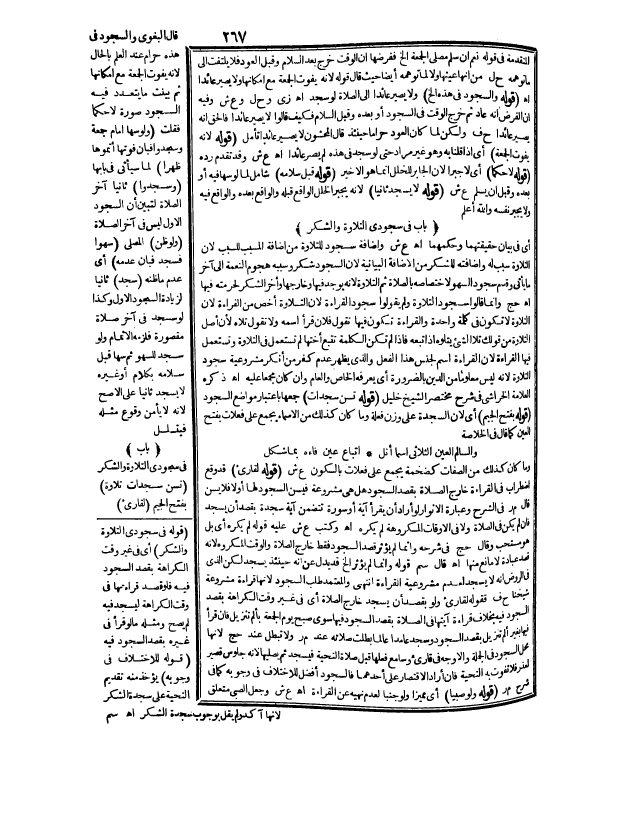 ٢٦٧
المتقدمة في قوله نعم ان سلم مصلى الجمعة الخ ففرضها ان الوقت خرج بعد السلام وقبل العود فلا يلتفت الى
ماتوهمه حل من انها عينها ولا لما توهمه أيضا حيث قال قوله لانه يفوت الجمعة مع امكانها ولا يصير عائدا
اه (قوله والسجود في هذه الخ) ولا يصير عائدا الى الصلاة لو سجد اه زى وحل وعش وفيه
ان الفرض أنه عاد ثم خرج الوقت في السجود أو بعده وقبل السلام فكيف قالوا لا يصير عائدا الحاقا
يصير عائدا حف ولكن لما كان العود حراما حينئذ قال المحشون لا يصير عائدا تأمل (قوله لانه
يفوت الجمعة) أى اذا قلنا به وهو غير مراد حتى لو سجد في هذه لم يصر عائدا اه عش وقد تقدم رده
(قوله لاحكما) أى لا جبرا لان الجابر للخلل انما هو الاخير (قوله قبل سلامه) شامل لما لو سها فيه أو
بعده وقبل ان يسلم عش (قوله لا يسجد ثانيا) لانه يجبر الخلل الواقع قبله والواقع بعده والواقع فيه
ولا يجبر نفسه والله أعلم
﴿ باب في سجودى التلاوة والشكر ﴾
أى في بيان حقيقتهما وحكمهما اه عش واضافة سجود للتلاوة من اضافة المسبب للسبب لان
التلاوة سبب له واضافته للشكر من الاضافة البيانية لان السجود شكر وسببه هجوم النعمة الى آخر
ما يأتى وقدم سجود السهو لاختصاصه بالصلاة ثم التلاوة لانه يوجد فيها وخارجها وأخر الشكر لحرمته فيها
اه حج وانما قالوا سجود التلاوة ولم يقولوا سجود القراءة لان التلاوة أخص من القراءة لان
التلاوة لا تكون في كلمة واحدة والقراءة تكون فيها تقول فلان قرأ اسمه ولا تقول تلاه لأن أصل
التلاوة من قولك تلا الشئ يتلوه اذا تبعه فاذا لم تكن الكلمة تتبع أختها لم تستعمل في التلاوة وتستعمل
فيها القراءة لان القراءة اسم لجنس هذا الفعل والذى يظهر عدم كفر من أنكر مشروعية سجود
التلاوة لانه ليس معلوما من الدين بالضرورة أى يعرفه الخاص والعام وان كان مجمعا عليه اه ذكره
العلامة الخراشى في شرح مختصر الشيخ خليل (قوله تسن سجدات) جمعها باعتبار مواضع السجود
(قوله بفتح الجيم) أى لان السجدة على وزن فعلة وما كان كذلك من الاسماء يجمع على فعلات بفتح
العين كما قال في الخلاصة
والسالم العين الثلاثى اسما أنل * اتباع عين فاءه بما شكل
وما كان كذلك من الصفات كضخمة يجمع على فعلات بالسكون عش (قوله لقارئ) قد وقع
اضطراب في القراءة خارج الصلاة بقصد السجود هل هى مشروعة فيسن السجود لها أو لا فلا يسن
قال مر في الشرح وعبارة الانوار لو أراد أن يقرأ آية أو سورة تتضمن آية سجدة بقصد أن يسجد
فان لم يكن في الصلاة ولا في الاوقات المكروهة لم يكره اه وكتب عش عليه قوله لم يكره أى بل
هو مستحب وقال حج في شرحه وانما لم يؤثر قصد السجود فقط خارج الصلاة والوقت المكروه لانه
قصد عبادة لا مانع منها اه قال سم قوله وانما لم يؤثر الخ قد يدل عن انه حينئذ يسجد لكن الذى
في الروض انه لا يسجد لعدم مشروعية القراءة انتهى والمعتمد طلب السجود لانها قراءة مشروعة
شيخنا حف فقوله لقارئ ولو بقصد أن يسجد خارج الصلاة أى في غير وقت الكراهة بقصد
السجود فيه بخلاف قراءة آيتها في الصلاة بقصد السجود فيها سوى صبح يوم الجمعة بألم تنزيل فان قرأ
فيها بغير ألم تنزيل بقصد السجود وسجد عامدا عالما بطلت صلاته عند مر ولا تبطل عند حج لانها
محل السجود في الجملة والاوجه في قارئ وسامع فعلها قبل صلاة التحية فيسجد ثم يصليها لانه جلوس قصير
لعذر فلا تفوت به التحية فان أراد الاقتصار على أحدهما فالسجود أفضل للاختلاف في وجوبه كما في
شرح مر (قوله ولو صبيا) أى مميزا ولو جنبا لعدم نهيه عن القراءة اه عش وجعل الصبى متعلق
قال البغوى والسجود في
هذه حرام عند العلم بالحال
لانه يفوت الجمعة مع امكانها
ثم بينت ما يتعدد فيه
السجود صورة لاحكما
فقلت (ولو سها امام جمعة
وسجدوا فبان فوتها أتموها
ظهرا) لما سيأتى في بابها
(وسجدوا) ثانيا آخر
الصلاة لتبين أن السجود
الاول ليس في آخر الصلاة
(ولو ظن) المصلى (سهوا
فسجد فبان عدمه) أى
عدم ما ظنه (سجد) ثانيا
لزيادة السجود الاول وكذا
لو سجد في آخر صلاة
مقصورة فلزمه الاتمام ولو
سجد للسهو ثم سها قبل
سلامه بكلام أو غيره
لا يسجد ثانيا على الاصح
لانه لا يأمن وقوع مثله
فيتسلسل
﴿ باب ﴾
في سجودى التلاوة والشكر
(تسن سجدات تلاوة)
بفتح الجيم (لقارئ)
(قوله في سجودى التلاوة
والشكر) أى في غير وقت
الكراهة بقصد السجود
فيه فلو قصد قراءتها في
وقت الكراهة ليسجد فيه
لم يصح ومثله ما لو قرأ في
غيره بقصد السجود فيه
(قوله للاختلاف في
وجوبه) يؤخذ منه تقديم
التحية على سجدة الشكر
لانها آكد ولم يقل بوجوب سجدة الشكر اه سم